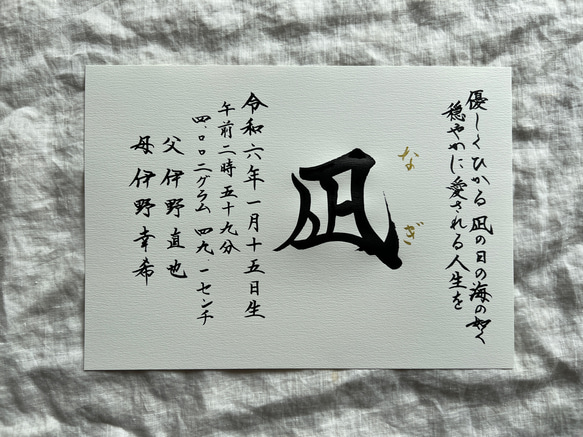 優しくひかる 凪の日の海の如く
穏やかに愛される人生を
なぎ
凪
令和六年一月十五日生
午前二時五十九分
四.〇〇二グラム 四九.一センチ
父 伊野直也
母 伊野幸希